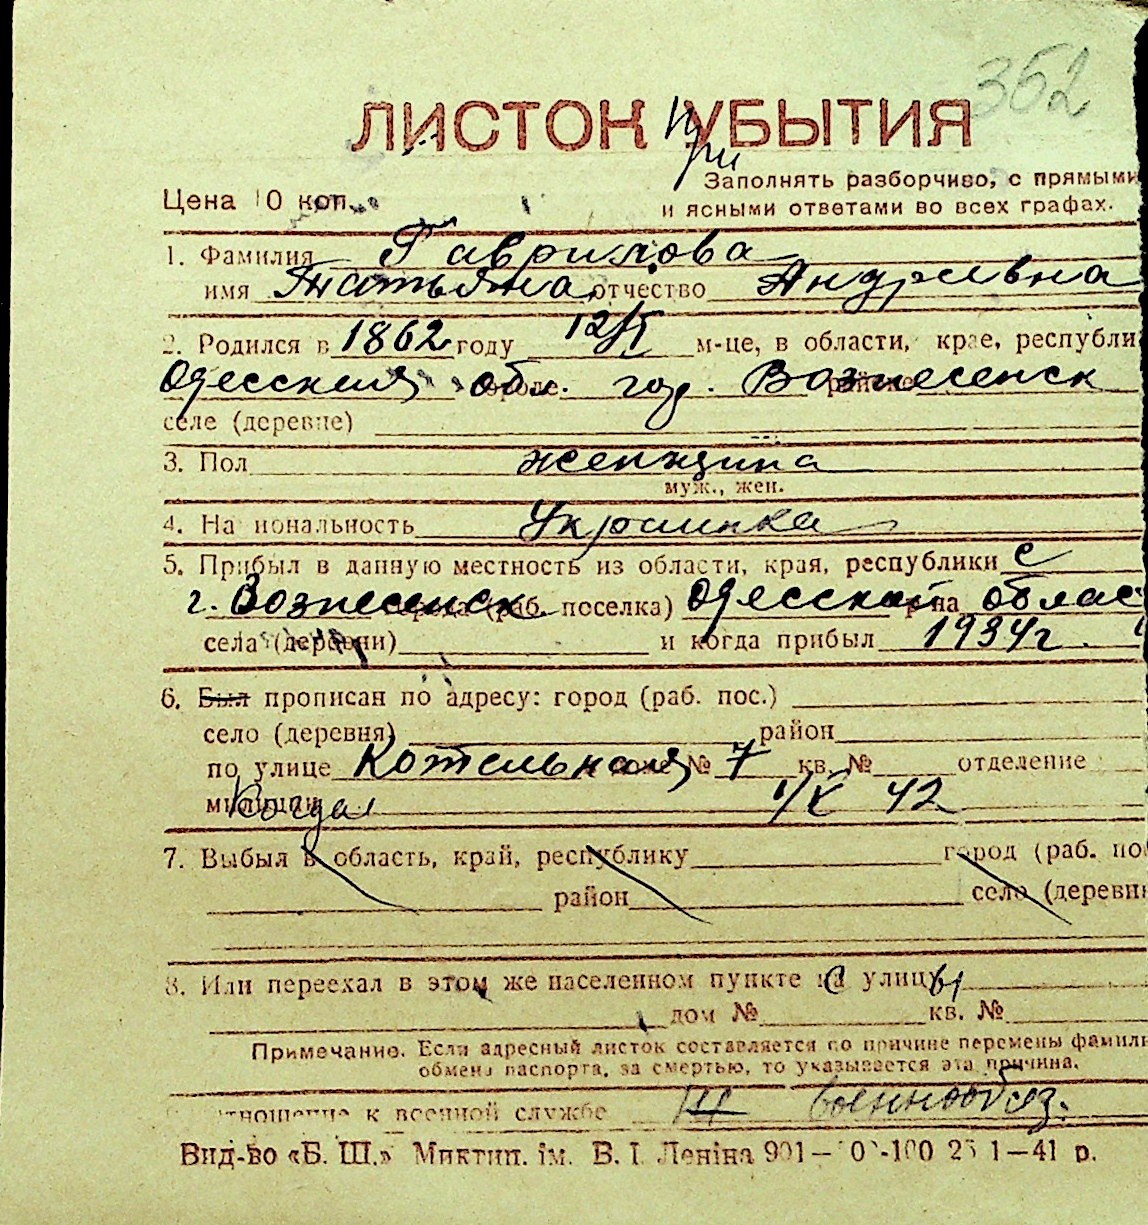 352
ЛИСТОК УБЫТИЯ
при
Заполнять разборчиво, с прямыми
Цена 10 коп.
и ясными ответами во всех графах.
1. Фамилия Гаврилова
имя Татьяна отчество Андреевна
2. Родился в 1862 году 12/V м-це, в области, крае, республи
Одесская обл. городе гор. Вознесенск районе
селе (деревне)
3. Пол женщина
муж., жен.
4. Национальность Украинка
5. Прибыл в данную местность из области, края, республики с
г. Вознесенск города (раб. поселка) Одесской р-на облас
села (деревни) и когда прибыл 1934 г.
6. Был прописан по адресу: город (раб. пос.)
село (деревня) район
по улице Котельная доме № 7 кв. № отделение
милиции Когда 1/X 42
7. Выбыл в область, край, республику город (раб. по
район село (деревн
8. Или переехал в этом же населенном пункте на с улицу ы
дом № кв. №
Примечание. Если адресный листок составляется по причине перемены фамили
обмена паспорта, за смертью, то указывается эта причина.
отношение к военной службе военнообяз.
Вид-во «Б. Ш.» Миктип. ім. В. І. Леніна 901—
1—41 р.